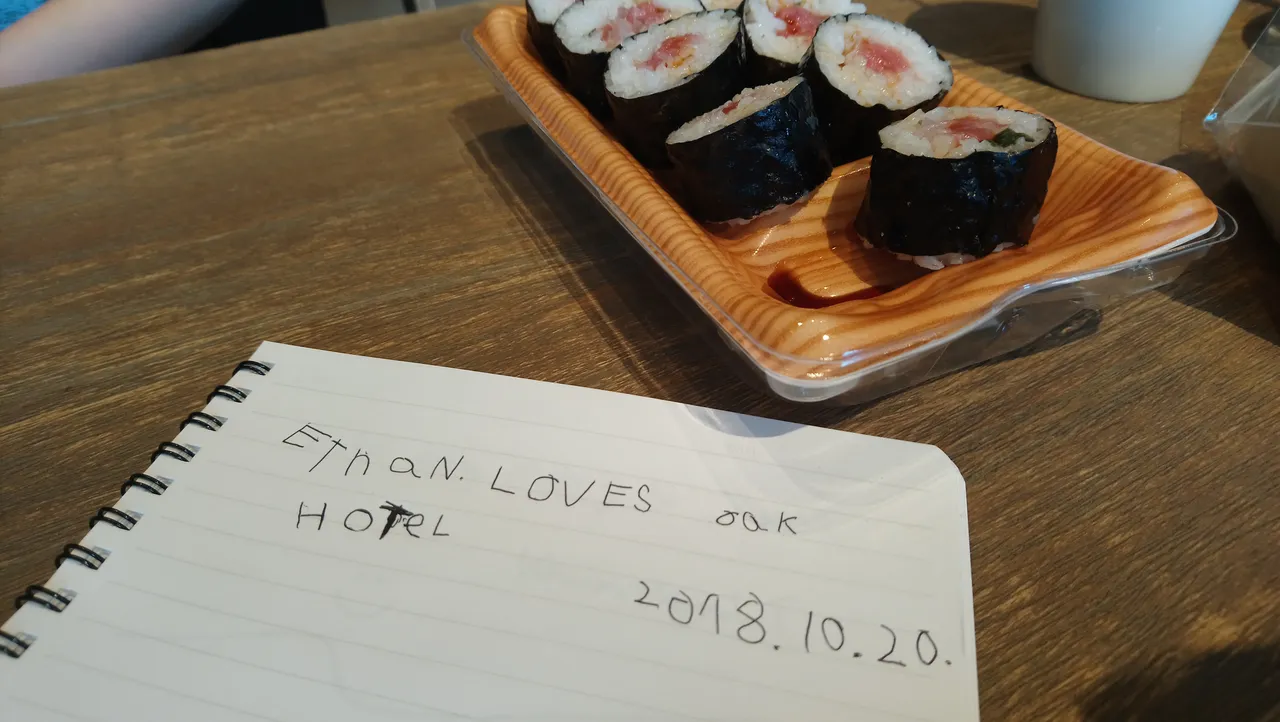 EThaN. LOVES oak
HOTeL
2018.10.20.